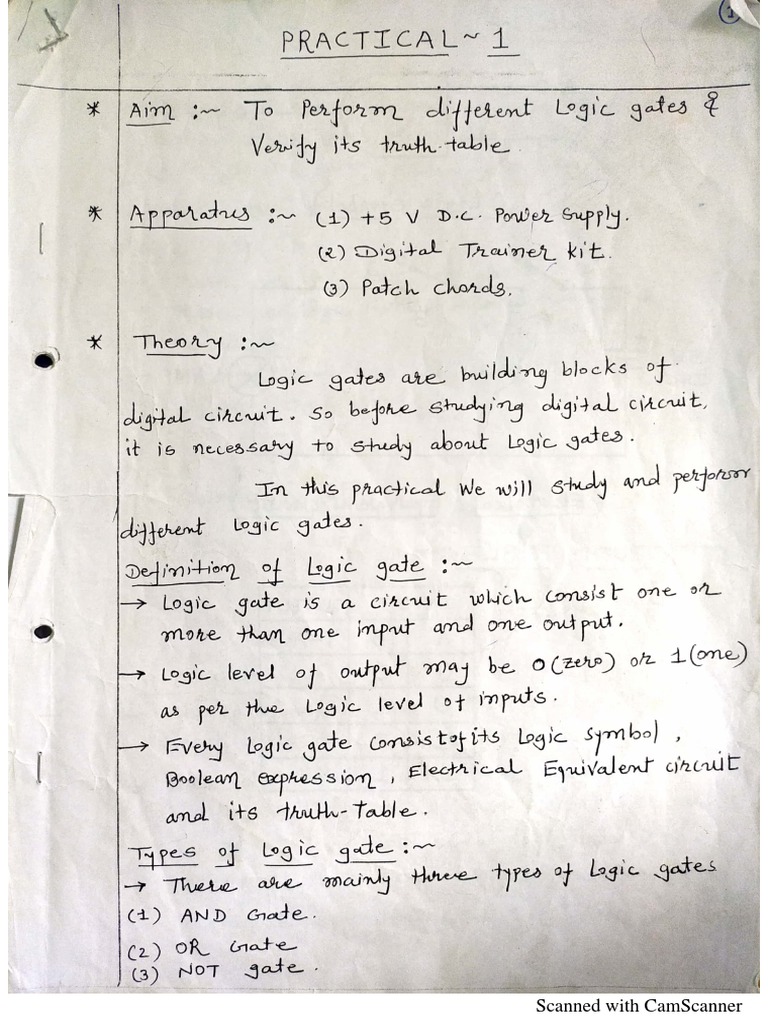 1
PRACTICAL ~ 1
* Aim :~ To Perform different Logic gates &
Verify its truth-table.
* Apparatus :~ (1) +5 V D.C. Power Supply.
(2) Digital Trainer kit.
(3) Patch chords.
* Theory :~
Logic gates are building blocks of
digital circuit. So before studying digital circuit,
it is necessary to study about Logic gates.
In this practical we will study and perform
different Logic gates.
Definition of Logic gate :~
→ Logic gate is a circuit which consist one or
more than one input and one output.
→ Logic level of output may be 0 (zero) or 1 (one)
as per the Logic level of inputs.
→ Every Logic gate consist of its Logic symbol,
Boolean expression, Electrical Equivalent circuit
and its truth-Table.
Types of Logic gate :~
→ There are mainly three types of Logic gates
(1) AND Gate.
(2) OR Gate
(3) NOT gate.
Scanned with CamScanner